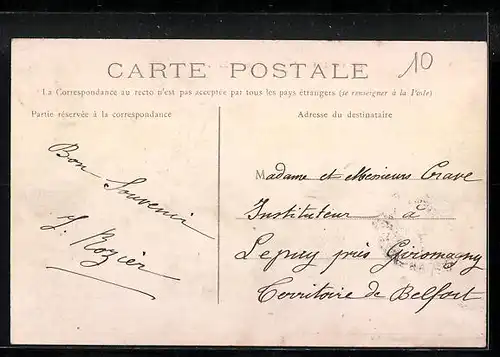 10
CARTE POSTALE
La Correspondance au recto n'est pas acceptée par tous les pays étrangers (se renseigner à la Poste)
Partie réservée à la correspondance
Adresse du destinataire
Bon Souvenir
J. Rozier
Madame et Monsieur Crave
Instituteur à
Lepuy près Giromagny
Territoire de Belfort